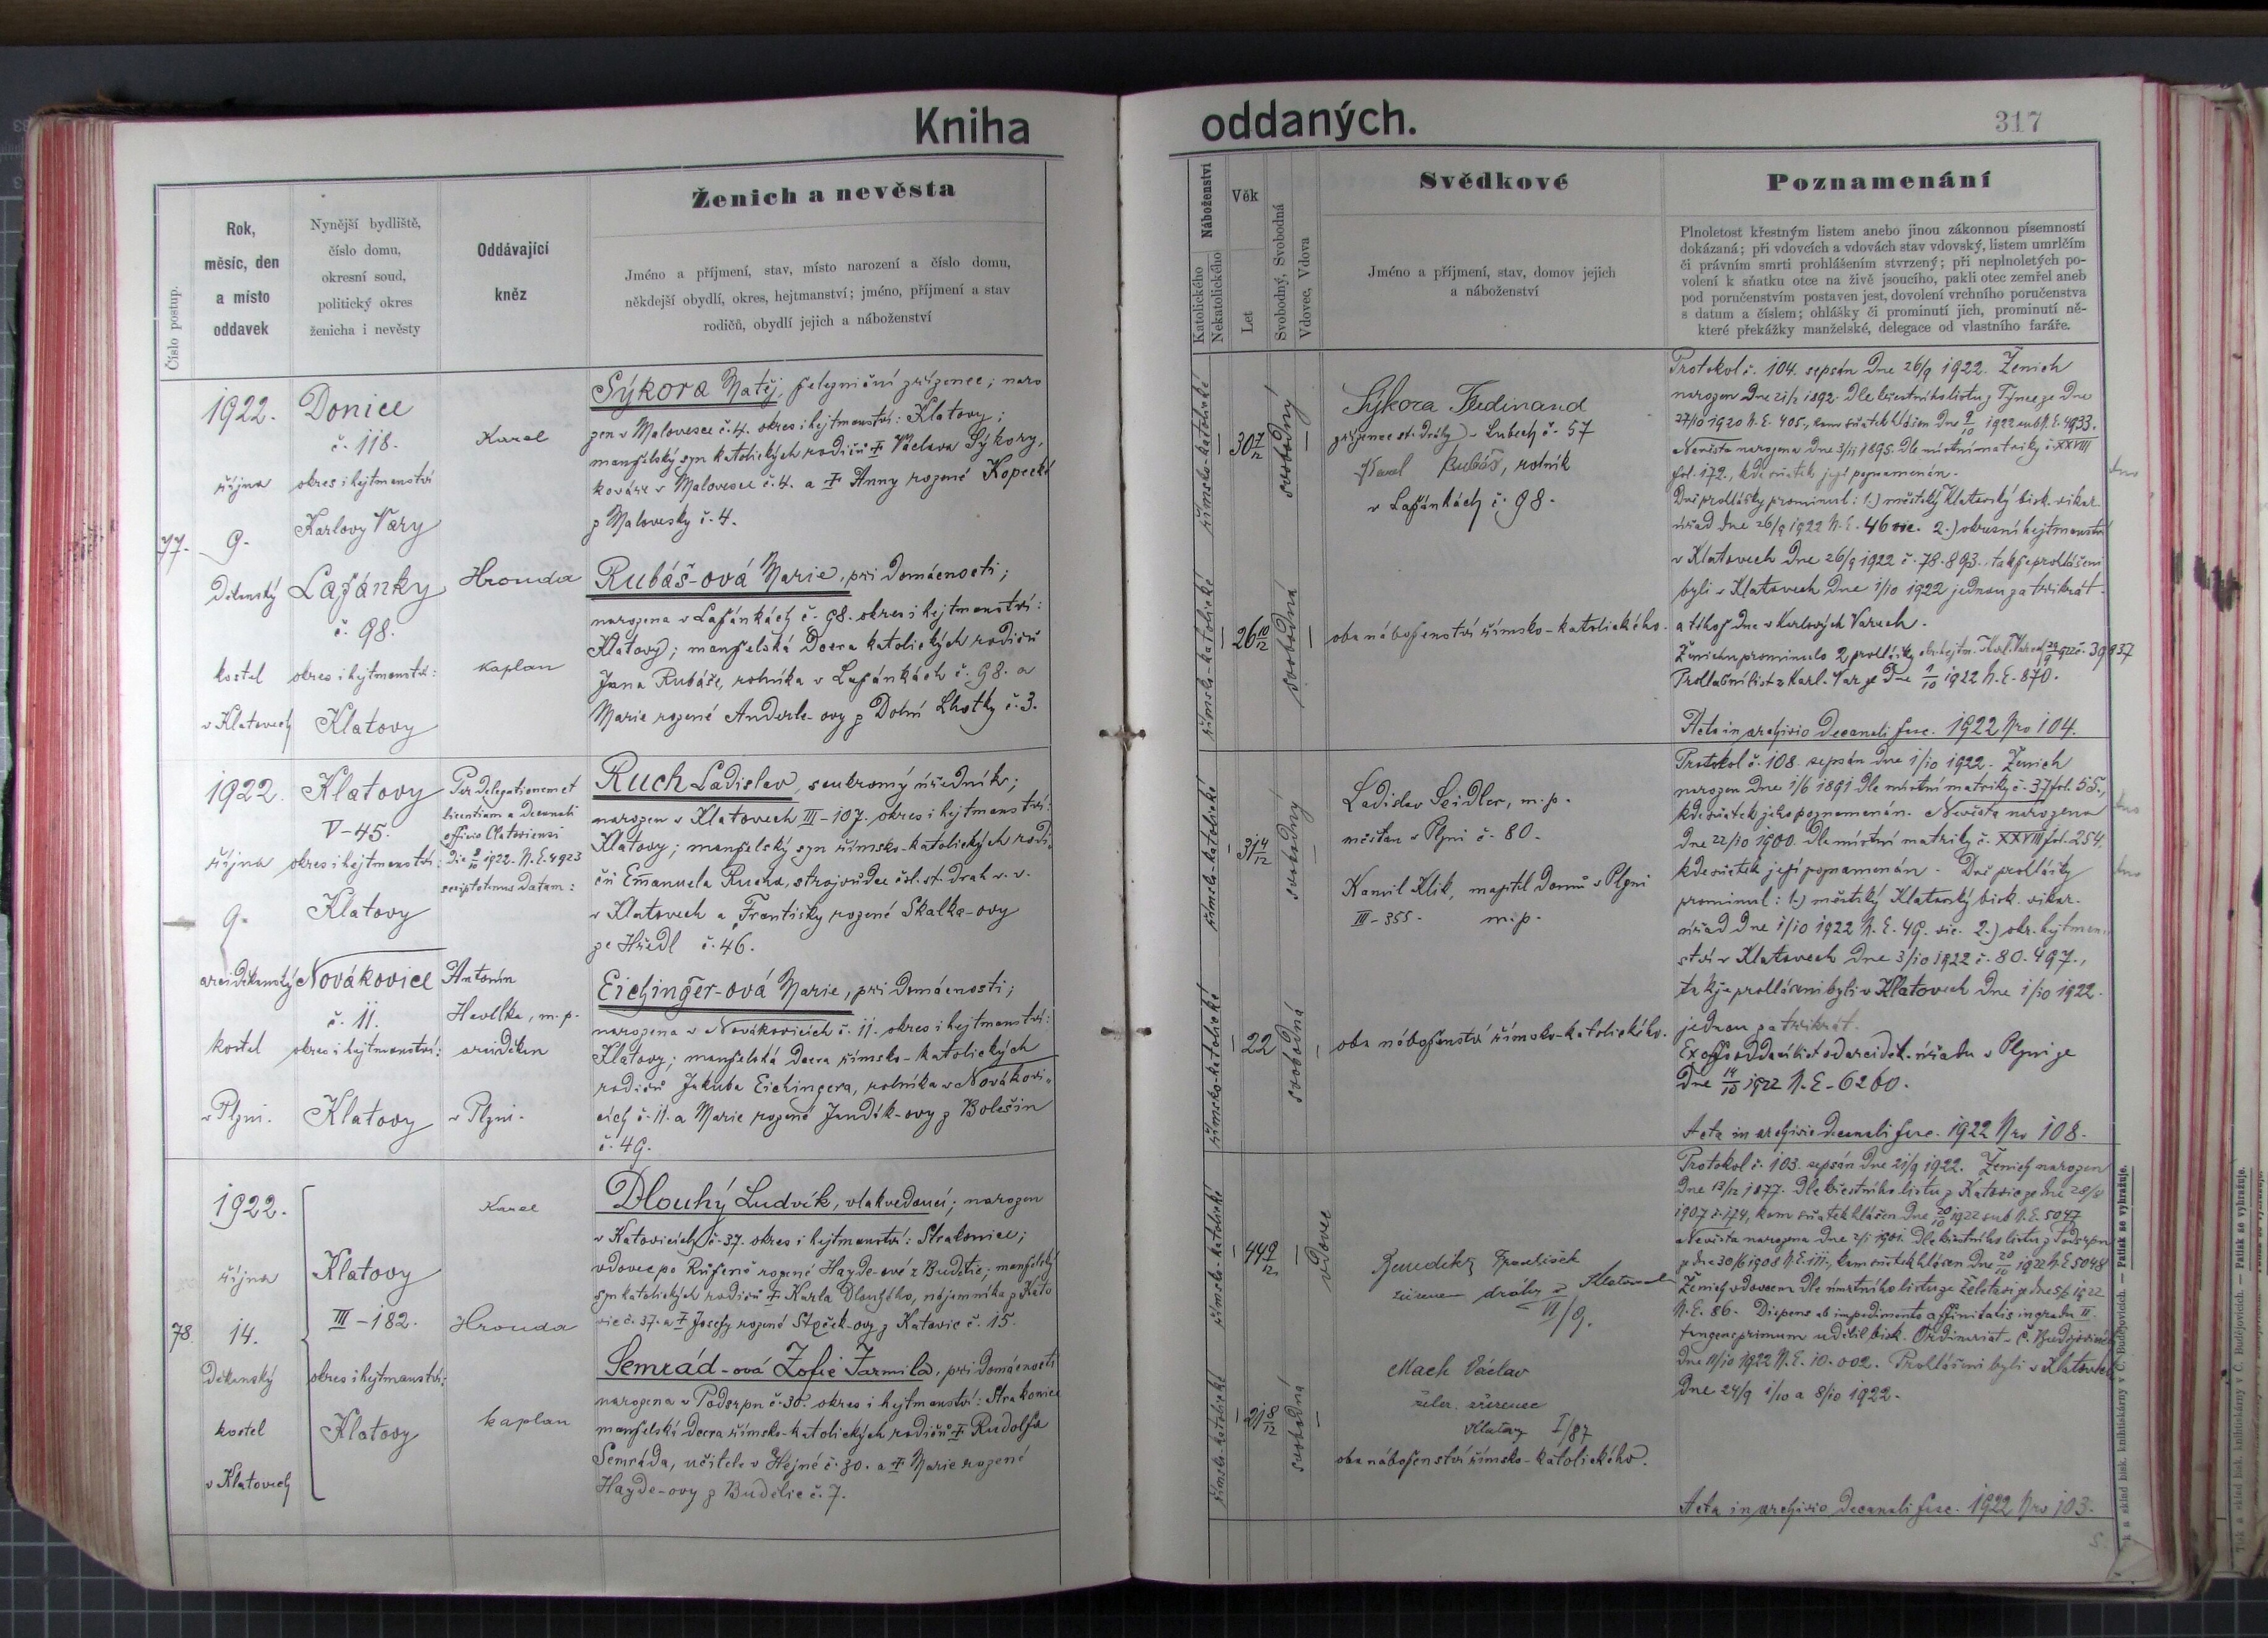 Kniha oddaných.
317
Číslo postup.
Rok,
měsíc, den
a místo
oddavek
Nynější bydliště,
číslo domu,
okresní soud,
politický okres
ženicha i nevěsty
Oddávající
kněz
Ženich a nevěsta
Jméno a příjmení, stav, místo narození a číslo domu,
někdejší obydlí, okres, hejtmanství; jméno, příjmení a stav
rodičů, obydlí jejich a náboženství
Náboženství
Katolického
Nekatolického
Věk
Let
Svobodný, Svobodná
Vdovec, Vdova
Svědkové
Jméno a příjmení, stav, domov jejich
a náboženství
Poznamenání
Plnoletost křestným listem anebo jinou zákonnou písemností
dokázaná; při vdovcích a vdovách stav vdovský, listem umrlčím
či právním smrti prohlášením stvrzený; při neplnoletých po-
volení k sňatku otce na živě jsoucího, pakli otec zemřel aneb
pod poručenstvím postaven jest, dovolení vrchního poručenstva
s datum a číslem; ohlášky či prominutí jich, prominutí ně-
které překážky manželské, delegace od vlastního faráře.
77.
1922.
října
9.
Děkanský
kostel
v Klatovech
Donice
č. 118.
okres i hejtmanství
Karlovy Vary
Lažánky
č. 98.
okres i hejtmanství:
Klatovy
Karel
Hrouda
kaplan
Sýkora Matěj, železniční zřízenec; naro
zen v Malovesce č. 4. okres i hejtmanství: Klatovy;
manželský syn katolických rodičů † Václava Sýkory,
kováře v Malovesce č. 4. a † Anny rozené Kopecké
z Malovesky č. 4.
Rubáš-ová Marie, při domácnosti;
narozena v Lažánkách č. 98. okres i hejtmanství:
Klatovy; manželská dcera katolických rodičů
Jana Rubáše, rolníka v Lažánkách č. 98. a
Marie rozené Anderle-ovy z Dolní Lhotky č. 3.
římsko-katolické
30 7/12
svobodný
římsko-katolické
26 10/12
svobodná
Sýkora Ferdinand
zřízenec st. dráhy - Lubech č. 57
Karel Rubáš, rolník
v Lažánkách č. 98.
oba náboženství římsko-katolického.
Protokol č. 104. sepsán dne 26/9 1922. Ženich
narozen dne 21/2 1892. Dle křestního listu z Týnce ze dne
27/10 1920 N.E. 405, kam sňatek hlášen dne 9/10 1922 sub N.E. 4933.
Nevěsta narozena dne 3/11 1895. Dle místní matriky č. XXVIII
fol. 172., kde sňatek její poznamenán.
Dvě prohlášky prominul: 1.) městský Klatovský bisk. vikar.
úřad dne 26/9 1922 N.E. 46 vic. 2.) okresní hejtmanství
v Klatovech dne 26/9 1922 č. 78.893. takže prohlášeni
byli v Klatovech dne 1/10 1922 jednou za třikrát.
a téhož dne v Karlových Varech.
Ženichu prominulo 2 prohlášky
Acta in archivio decanali fasc. 1922 Nro 104.
1922.
října
9.
arciděkanský
kostel
v Plzni.
Klatovy
V-45.
okres i hejtmanství:
Klatovy
Novákovice
č. 11.
okres i hejtmanství:
Klatovy
Per delegationem et
licentiam a decanali
officio Clatoviensi
die 2/10 1922. N.E. 4923
scriptotenus datam:
Antonín
Havelka, m.p.
arciděkan
v Plzni.
Ruch Ladislav, soukromý úředník;
narozen v Klatovech III-107. okres i hejtmanství:
Klatovy; manželský syn římsko-katolických rodi-
čů Emanuela Rucha, strojvůdce čsl. st. drah v. v.
v Klatovech a Františky rozené Skalka-ovy
ze Hředl č. 46.
Eichinger-ová Marie, při domácnosti;
narozena v Novákovicích č. 11. okres i hejtmanství:
Klatovy; manželská dcera římsko-katolických
rodičů Jakuba Eichingera, rolníka v Novákovi-
cích č. 11. a Marie rozené Jandík-ovy z Bolešin
č. 49.
římsko-katolické
31 4/12
svobodný
římsko-katolické
22
svobodná
Ladislav Seidler, m.p.
měšťan v Plzni č. 80.
Kamil Klik, majitel domu v Plzni
III-355. m.p.
oba náboženství římsko-katolického.
Protokol č. 108. sepsán dne 1/10 1922. Ženich
narozen dne 1/6 1891 Dle místní matriky č. 37 fol. 55.,
kde sňatek jeho poznamenán. Nevěsta narozena
dne 22/10 1900. Dle místní matriky č. XXVIII fol. 254.
kde sňatek její poznamenán. Dvě prohlášky
prominul: 1.) městský Klatovský bisk. vikar.
úřad dne 1/10 1922 N.E. 49. vic. 2.) okr. hejtman-
ství v Klatovech dne 3/10 1922 č. 80.497.,
takže prohlášeni byli v Klatovech dne 1/10 1922.
jednou za třikrát.
Ex offo oddací list od arciděk. úřadu v Plzni ze
dne 14/10 1922 N.E. 6260.
Acta in archivio decanali fasc. 1922 Nro 108.
78.
1922.
října
14.
Děkanský
kostel
v Klatovech
Klatovy
III-182.
okres i hejtmanství:
Klatovy
Karel
Hrouda
kaplan
Dlouhý Ludvík, vlakvedoucí; narozen
v Katovicích č. 37. okres i hejtmanství: Strakonice;
vdovec po Růženě rozené Hayde-ové z Budětic; manželský
syn katolických rodičů † Karla Dlouhého, nájemníka z Kato
vic č. 37. a † Josefy rozené -ovy z Katovic č. 15.
Semrád-ová Žofie Jarmila, při domácnosti
narozena v Podsrpnu č. 30. okres i hejtmanství: Strakonice
manželská dcera římsko-katolických rodičů † Rudolfa
Semráda, učitele v Hejné č. 30. a † Marie rozené
Hayde-ovy z Budětic č. 7.
římsko-katolické
44 9/12
vdovec
římsko-katolické
21 8/12
svobodná
Benedikt František
zřízenec dráhy z Klatov
VI/9.
Mach Václav
želez. zřízenec
Klatovy I/87
oba náboženství římsko-katolického.
Protokol č. 103. sepsán dne 21/9 1922. Ženich narozen
dne 13/12 1877. Dle křestního listu z Katovic ze dne
1907 č. 174, kam sňatek hlášen dne 20/10 1922 sub N.E. 5047
Nevěsta narozena dne 2/1 1901. Dle křestního listu z Podsrpna
ze dne 30/6 1908 N.E. 111., kam sňatek hlášen dne 20/10 1922 N.E. 5048
Ženich vdovcem dle úmrtního listu ze
N.E. 86. Dispens ab impedimento affinitatis in gradu II.
tangens primum udělil bisk. Ordinariát v Č. Budějovicích
dne 11/10 1922 N.E. 10.002. Prohlášeni byli v Klatovech
dne 24/9 1/10 a 8/10 1922.
Acta in archivio decanali fasc. 1922 Nro 103.
Tisk a sklad bisk. knihtiskárny v Č. Budějovicích. — Patisk se vyhražuje.